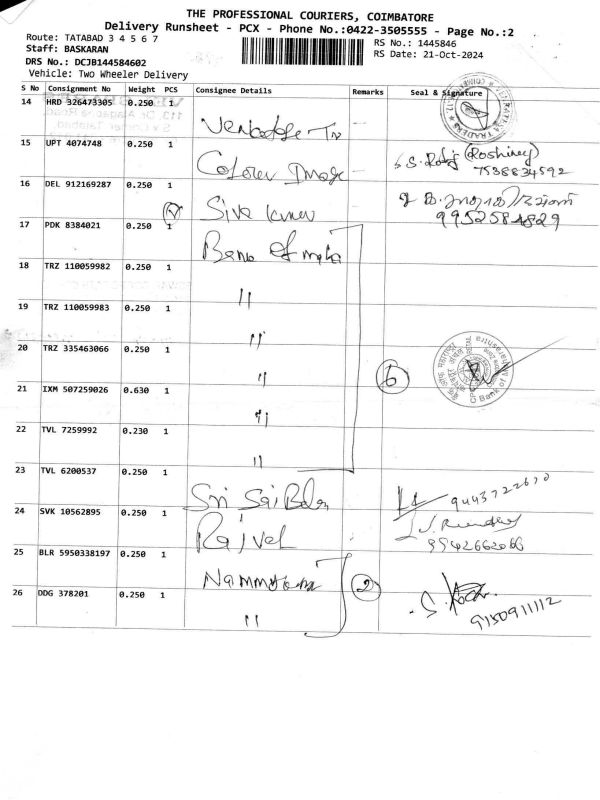 THE PROFESSIONAL COURIERS, COIMBATORE
Delivery Runsheet - PCX - Phone No.:0422-3505555 - Page No.:2
Route: TATABAD 3 4 5 6 7
RS No.: 1445846
Staff: BASKARAN
RS Date: 21-Oct-2024
DRS No.: DCJB144584602
Vehicle: Two Wheeler Delivery
S No Consignment No Weight PCS Consignee Details Remarks Seal & Signature
14 HRD 326473305 0.250 1
15 UPT 4074748 0.250 1 S. (Roshiney)
7538834592
16 DEL 912169287 0.250 1 Siva Kumar
9952584829
17 PDK 8384021 0.250 1 Bank of
18 TRZ 110059982 0.250 1 "
19 TRZ 110059983 0.250 1 "
20 TRZ 335463066 0.250 1 "
21 IXM 507259026 0.630 1 "
6
22 TVL 7259992 0.230 1 "
23 TVL 6200537 0.250 1 Sri Sai 
24 SVK 10562895 0.250 1 Rajvel
9942662066
25 BLR 5950338197 0.250 1
2
26 DDG 378201 0.250 1 "
9150911112